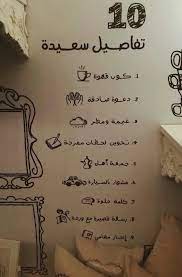 10
تفاصيل سعيدة
1. كوب قهوة
2. دعوة صادقة
3. غيمة ومطر
4. تدوين لحظات مفرحة
5. جمعة أهل
6. مشوار بالسيارة
7. كلمة حلوة
8. رسالة قصيرة مع وردة
9.